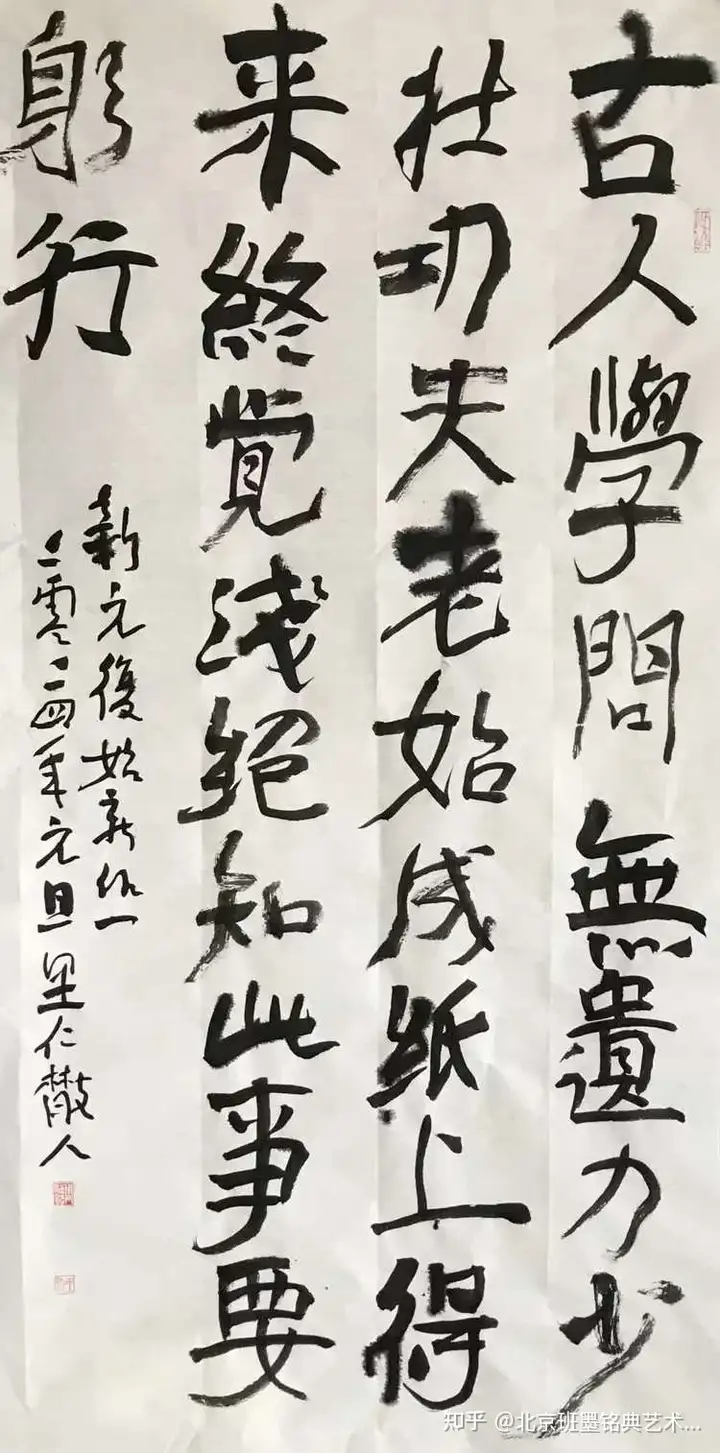 古人學問無遺力少
壮功夫老始成紙上得
来終覚浅絕知此事要
躬行
新元復始新
二零二四年元旦里仁散人
知乎 @北京班墨铭典艺术...